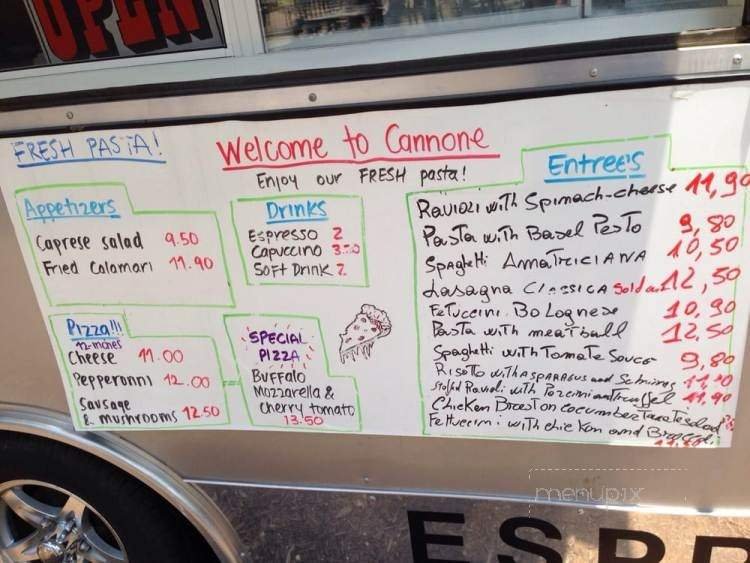 OPEN
FRESH PASTA!
Welcome to Cannone
Enjoy our FRESH pasta!
Appetizers
Caprese salad 9.50
Fried Calamari 11.90
Drinks
Espresso 2
Capuccino 3.50
Soft Drink 2
Pizza!!!
12-inches
Cheese 11.00
Pepperonni 12.00
Sausage
& mushrooms 12.50
SPECIAL
PIZZA
Buffalo
Mozzarella &
cherry tomato
13.50
Entree's
Ravioli with Spinach-cheese 11,90
Pasta with Basel Pesto 9,80
Spaghetti Amatriciana 10,50
Lasagna Classica Sold out 12,50
Fetuccini Bolognese 10,90
Pasta with meatball 12,50
Spaghetti with Tomato Sauce 9,80
Risotto with Asparagus and
Stoffd Ravioli with Porcini and 11,90
Chicken Breast on cocumber Tomate salad
Fettuccini with chicken and Broccoli
menupix
ESPR